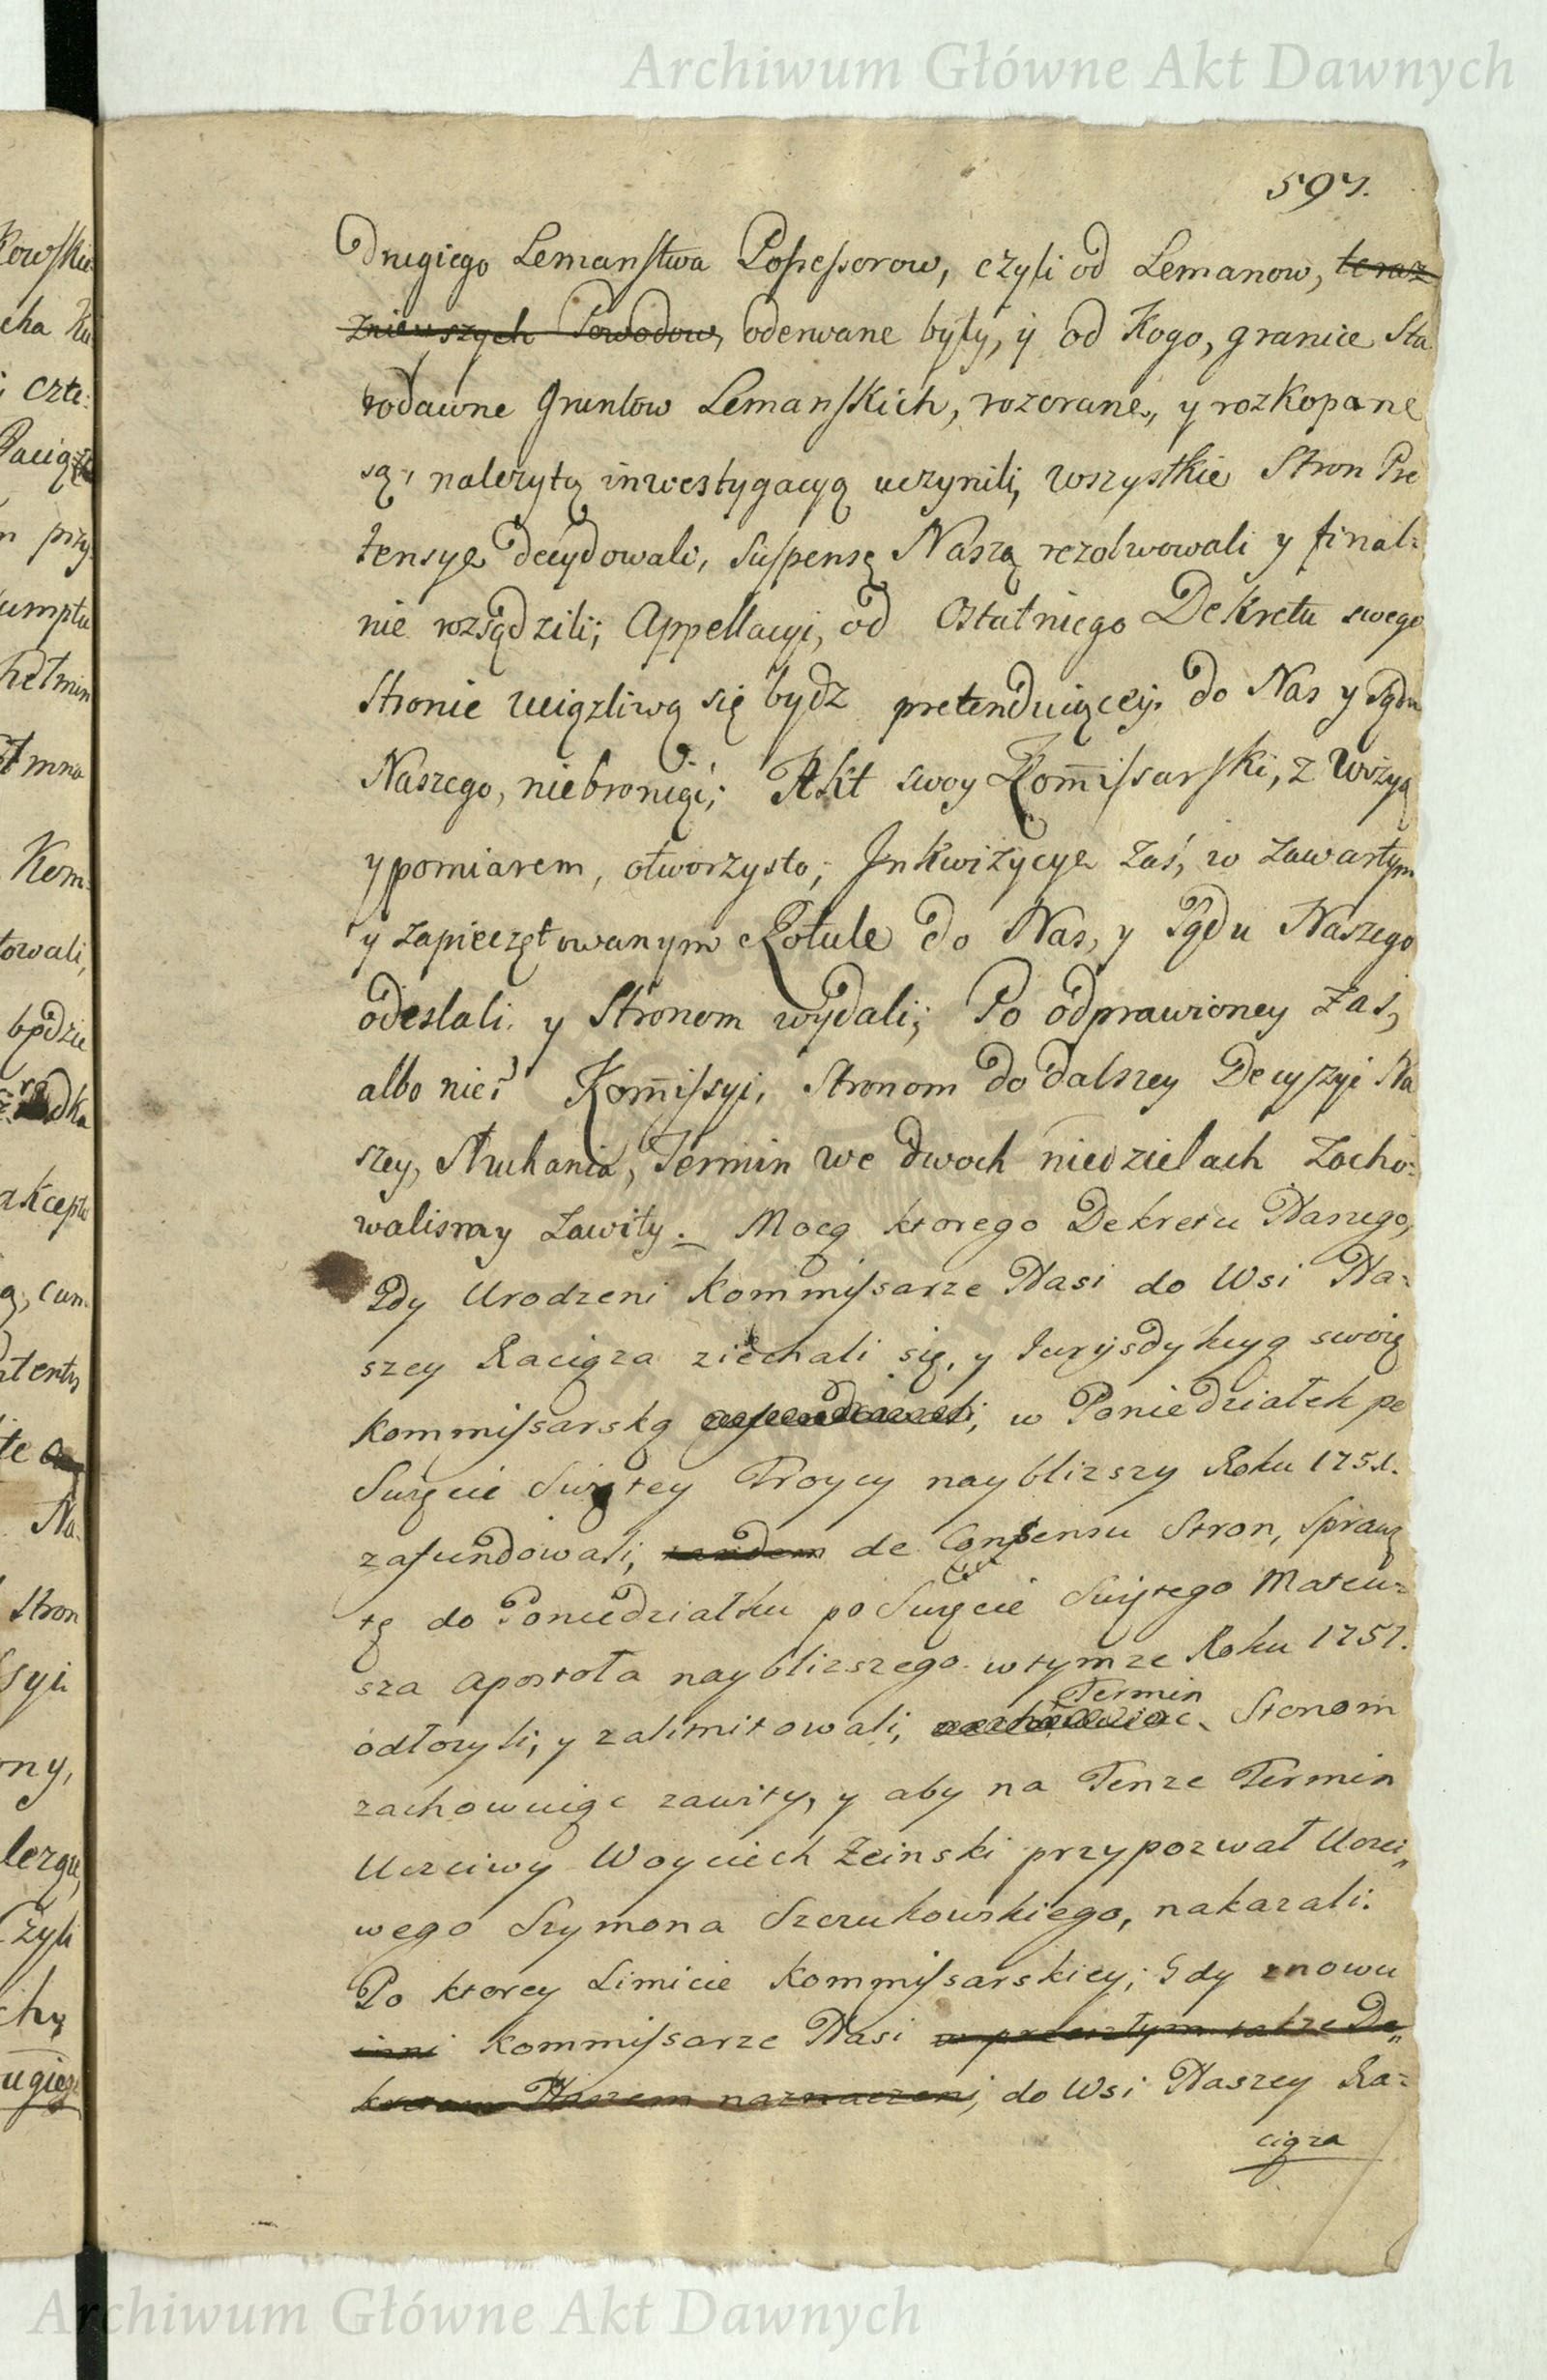 Archiwum Główne Akt Dawnych
597.
Drugiego Lemanstwa Possessorow, czyli od Lemanow, teraz
znieyszych Powodow, oderwane były, y od Kogo, granice Sta
rodawne Gruntow Lemanskich, rozorane, y rozkopane
są, należytą inwestygacyą uczynili, wszystkie Stron Pre
tensye decydowali, suspensę Naszą rezolwowali y final:
nie rozsądzili; Appellacyi, od Ostatniego Dekretu swego
Stronie uciązliwą się bydz pretenduiącey, do Nas y Sądu
Naszego, niebroniąc; Akt swoy Kom̃issarski, z Wizyą
y pomiarem, otworzysto; Inkwizycye zaś, w zawartym
y zapieczętowanym Rotule do Nas, y Sądu Naszego
odeslali, y Stronom wydali; Po odprawioney zaś,
albo nie? Kom̃issyi, Stronom do dalszey Decyzyi Na
szey, słuchania, Termin we dwoch niedzielach zacho:
walismy zawity. Mocą ktorego Dekretu Naszego,
Gdy Urodzeni Kommissarze Nasi do Wsi Na:
szey Raciąza ziechali się, y Jurysdykcyą swoię
Kommissarską, w Poniedziałek po
Swięcie Swiętey Troycy nayblizszy Roku 1751.
zafundowali, tandem de Consensu Stron, Sprawę
tę do Poniedziałku po Swięcie Swiętego Mateu:
sza Apostoła nayblizszego w tymze Roku 1751.
odłozyli, y zalimitowali, Termin Stonom
zachowuiąc zawity, y aby na Tenze Termin
Uczciwy Woyciech Zeinski przypozwał Uczci„
wego Szymona Szczukowskiego, nakazali.
Po ktorey Limicie Kommissarskiey; Gdy znowu
inni Kommissarze Nasi w przeszłym także De„
kretem Naszem naznaczeni, do Wsi Naszey Ra:
ciąza
Archiwum Główne Akt Dawnych